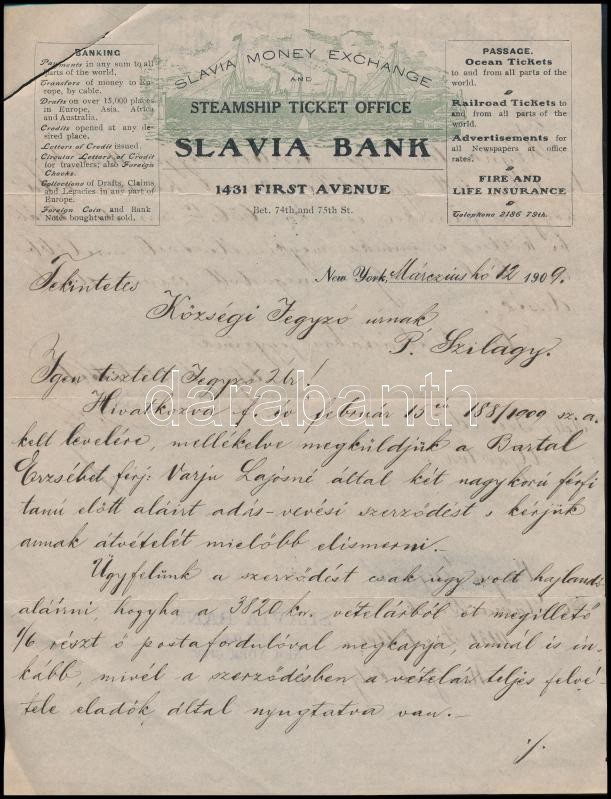 BANKING
Payments in any sum to all
parts of the world.
Transfers of money to Eu-
rope, by cable.
Drafts on over 15,000 places
in Europe, Asia, Africa
and Australia.
Credits opened at any de-
sired place.
Letters of Credit issued.
Circular Letters of Credit
for travellers; also Foreign
Checks.
Collections of Drafts, Claims
and Legacies in any part of
Europe.
Foreign Coin and Bank
Notes bought and sold.
SLAVIA MONEY EXCHANGE
AND
STEAMSHIP TICKET OFFICE
SLAVIA BANK
1431 FIRST AVENUE
Bet. 74th and 75th St.
PASSAGE.
Ocean Tickets
to and from all parts of the
world.
Railroad Tickets to
and from all parts of the
world.
Advertisements for
all Newspapers at office
rates.
FIRE AND
LIFE INSURANCE
Telephone 2186 79th.
New York, Márczius hó 12 1909.
Tekintetes
Községi Jegyző urnak
P. Szilágy.
Igen tisztelt Jegyző Ur!
Hivatkozva f. év február 15 én 188/1909 sz. a.
kelt levelére, mellékelve megküldjük a Bartal
Erzsébet férj: Varju Lajosné által két nagykorú férfi
tanú előtt aláirt adás-vevési szerződést s kérjük
annak átvételét mielőbb elismerni.-
Ügyfelünk a szerződést csak úgy volt hajlandó
aláirni hogyha a 3820 kor. vételárból őt megillető
1/6 részt ő postafordulóval megkapja, annál is in-
kább, mivél a szerződésben a vételár teljes felvé-
tele eladók által nyugtatva van.-
./.
darabanth